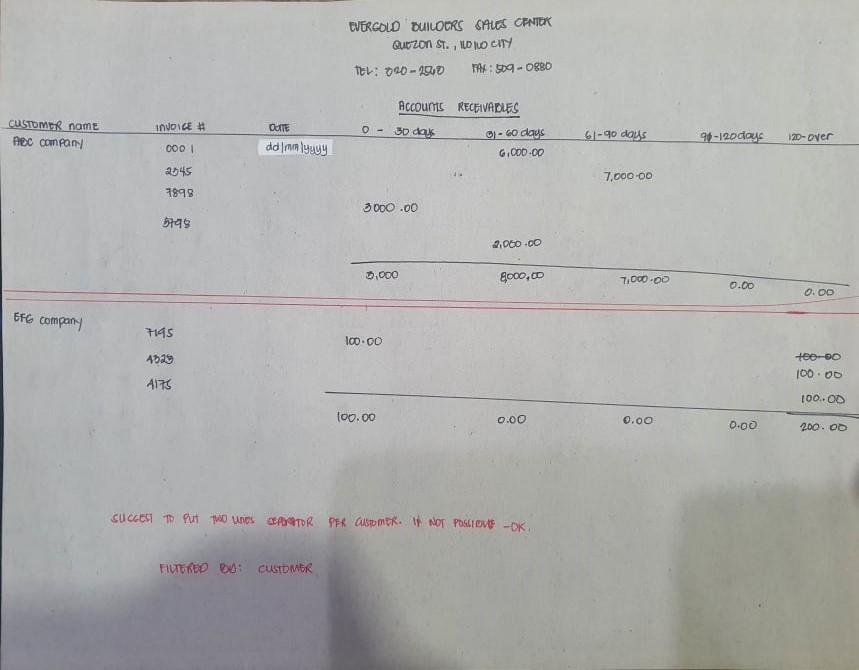 EVERGOLD BUILDERS SALES CENTER
QUEZON ST., ILOILO CITY
TEL: 020-2540 FAX: 509-0880
ACCOUNTS RECEIVABLES
CUSTOMER name INVOICE # DATE 0 - 30 days 31-60 days 61-90 days 91-120days 120-over
ABC company 0001 dd/mm/yyyy 6,000.00
2545 7,000.00
7898
3000.00
5798
2,000.00
3,000 8,000,00 7,000.00 0.00 0.00
EFG company
7145 100.00
4323 100.00
100.00
4175
100.00
100.00 0.00 0.00 0.00 200.00
SUGGEST TO PUT TWO LINES SEPARATOR PER CUSTOMER. If NOT POSSIBLE -OK.
FILTERED BY: CUSTOMER